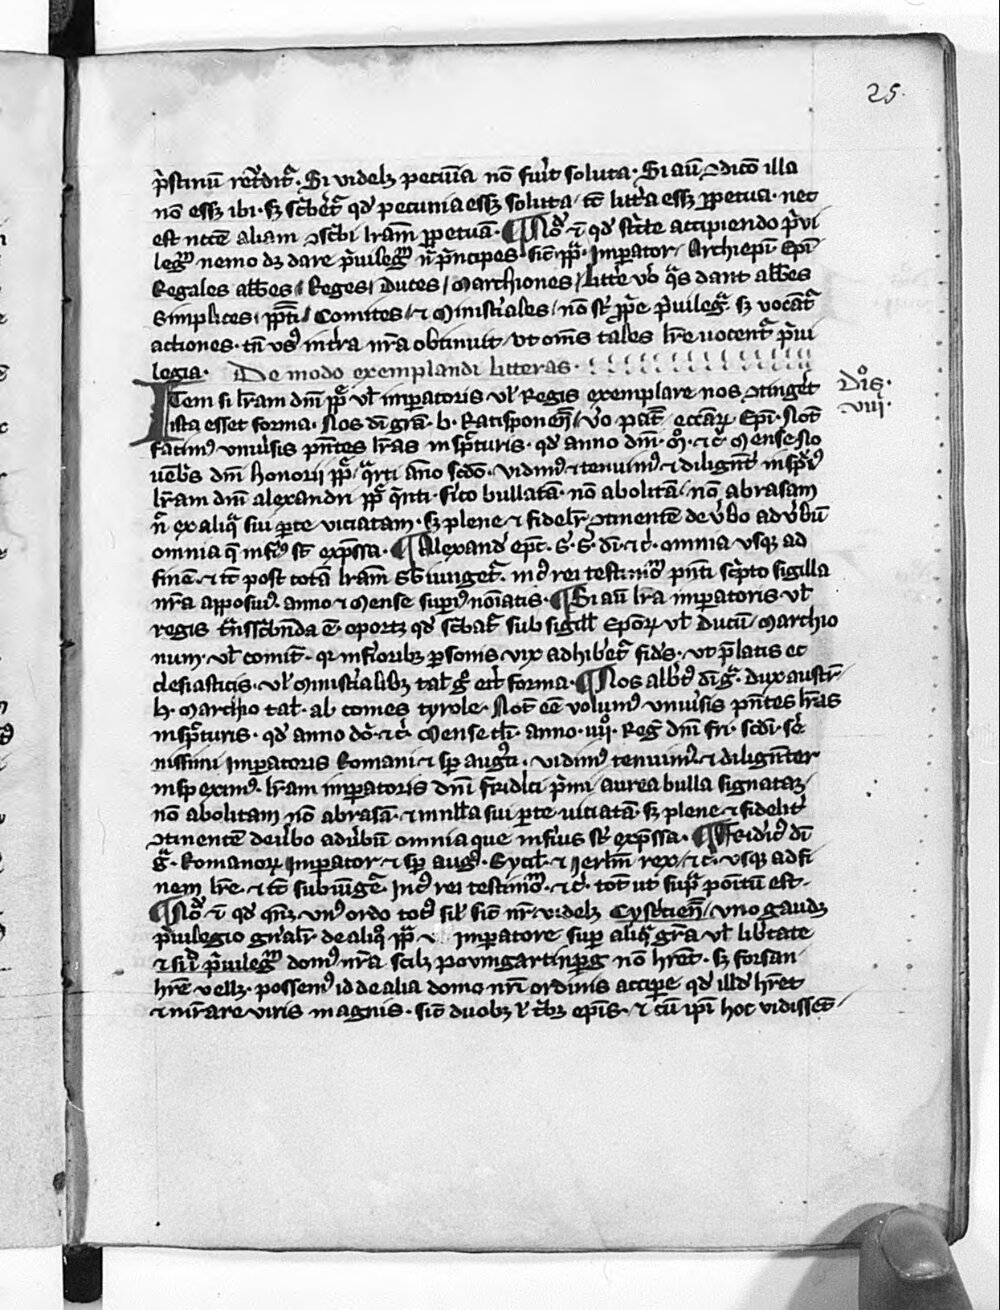 25.
p̄stinū ret̄dit᷑. Si videlȝ pecūia nō fuīt soluta. Si aū ꝯdicō illa
nō essȝ ibi. sȝ sc̄beret᷑ qd̛ pecunia essȝ soluta / tc̄ litt̄a essȝ ꝑpetua. nec
est nc̄ce aliam ꝯsc̄bi lr̄am ꝑpetuā. ¶ Nō ⁊ qd̛ st̄cte accipiendo p̄vi
leg̅ nemo dȝ dare p̄uileg̅ n̄ p̄ncipes. sic̄ pp̄. Imꝑator / Archiepī Epī
Regales abb̄es / Reges / Duces / Marchiones / litt̄e v̄o q̄s dant abb̄es
Simplices / pp̄ti / Comites / ⁊ Minist̄iales / nō st̄ ꝓpe p̄uileg̅. sȝ vocāt᷑
actiones. tn̄ vsꝰ int̄ra nr̄a obtinuit / vt om̄s tales lr̄e uocent᷑ p̄ui
legia. De modo exemplandi litteras.
Item si lr̄am dn̄i pp̄ vl̄ imꝑatoris vl̄ Regis exemplare nos ꝯtinget
ista esset forma. Nos dī grā. b. Ratisponen̄ / v̄o pat̄. eccāꝝ Epī. Not̄
facimꝰ vniuīsis p̄ntes lr̄as insp̄cturis. qd̛ anno dn̄i. M̊. ⁊ c̄. Mense No
uēb̄s dn̄i honorii pp̄ q̄rti āno scd̄o. vidimꝰ ⁊ tenuimꝰ ⁊ diligēt̄ insp̄ximꝰ
lr̄am dn̄i alexandri pp̄ q̄nti. fīco bullatā. nō abolitā. nō abrasam
n̄ ex aliq̄ sui ꝑte viciatam. sȝ plene ⁊ fidelr̄ ꝯtinentē de v̄bo ad v̄bū
omnia q̄ inf̄ius st̄ exp̄ssa. ¶ Alexand̄ ep̄c. S. S. dī ⁊ c̄. omnia vsqȝ ad
finē. ⁊ tc̄ post totā lr̄am sb̄iunget᷑. in cꝰ rei testimōiū p̄nti sc̄pto sigilla
nr̄a apposuimꝰ. anno ⁊ Mense suꝑiꝰ noīatis. ¶ Si aū lr̄a imꝑatoris vl̄
regis t̄nssc̄bēda ē. oportȝ qd̛ sc̄bat᷑ sub sigill̄ Epōꝝ vl̄ Ducū / Marchio
num. vl̄ comit̄. qr̄ inf̄ioribȝ ꝑsonis vix adhibet᷑ fides. vt p̄latis ec
clesiasticis. vl̄ Minist̄ialibȝ tal̄. g̊ erit forma. ¶ Nos alb̄tꝰ dī gr̄a. dux austr̄.
h. Marchio tal̄. al̄ comes tyrole. Not̄ eē volumꝰ vniuīsis p̄ntes lr̄as
insp̄cturis. qd̛ anno dō. ⁊ c̄. Mense tl̄i. anno. iiij. Reg̅. dn̄i fri. scd̄i. se
nissimi Imꝑatoris Romani ⁊ sꝑ augꝰti. vidimꝰ tenuimꝰ ⁊ diligēter
insꝑeximꝰ. lr̄am imꝑatoris dn̄i fridīci p̄mi / aurea bulla signatā /
nō abolitam nō abrasā. ⁊ in nulla sui ꝑte viciatā. sȝ plene ⁊ fidelit̄
ꝯtinentē de v̄bo ad v̄bū omnia que inf̄ius st̄ exp̄ssa. ¶ Fridīcꝰ dī
gr̄a. Romanoꝝ Imꝑator ⁊ sꝑ augꝰ. Sycil̄. ⁊ Jerlm̄ rex / ⁊ c̄. vsqȝ ad fi
nem lr̄e. ⁊ tc̄ subiūget᷑. In cꝰ rei testimōiū. ⁊ c̄. tot̄ ut supᷓ poītū est.
¶ Nō ⁊ qd̛ q̄nȝ vnꝰ ordo totꝰ sil̄ sic̄ nr̄. videlȝ Cyst̄cien̄ / vno gaudȝ
p̄uilegio gn̄alr̄ de aliq̊ pp̄ v. imꝑatore suꝑ aliq̄ gr̄a vl̄ lib̄tate
⁊ sil̄ p̄uileg̅ domꝰ nr̄a scilȝ povmgartinꝑg nō hr̄et. sȝ forsan
hr̄e vellȝ. possemꝰ id de alia domo nr̄i ordinis accipe qd̛ illd̛ hr̄et
⁊ mr̄are viris magnis. sic̄ duobȝ vl̄ t̄bȝ epīs. ⁊ cū ip̄i hoc vidissēt
Dōis.
viij.